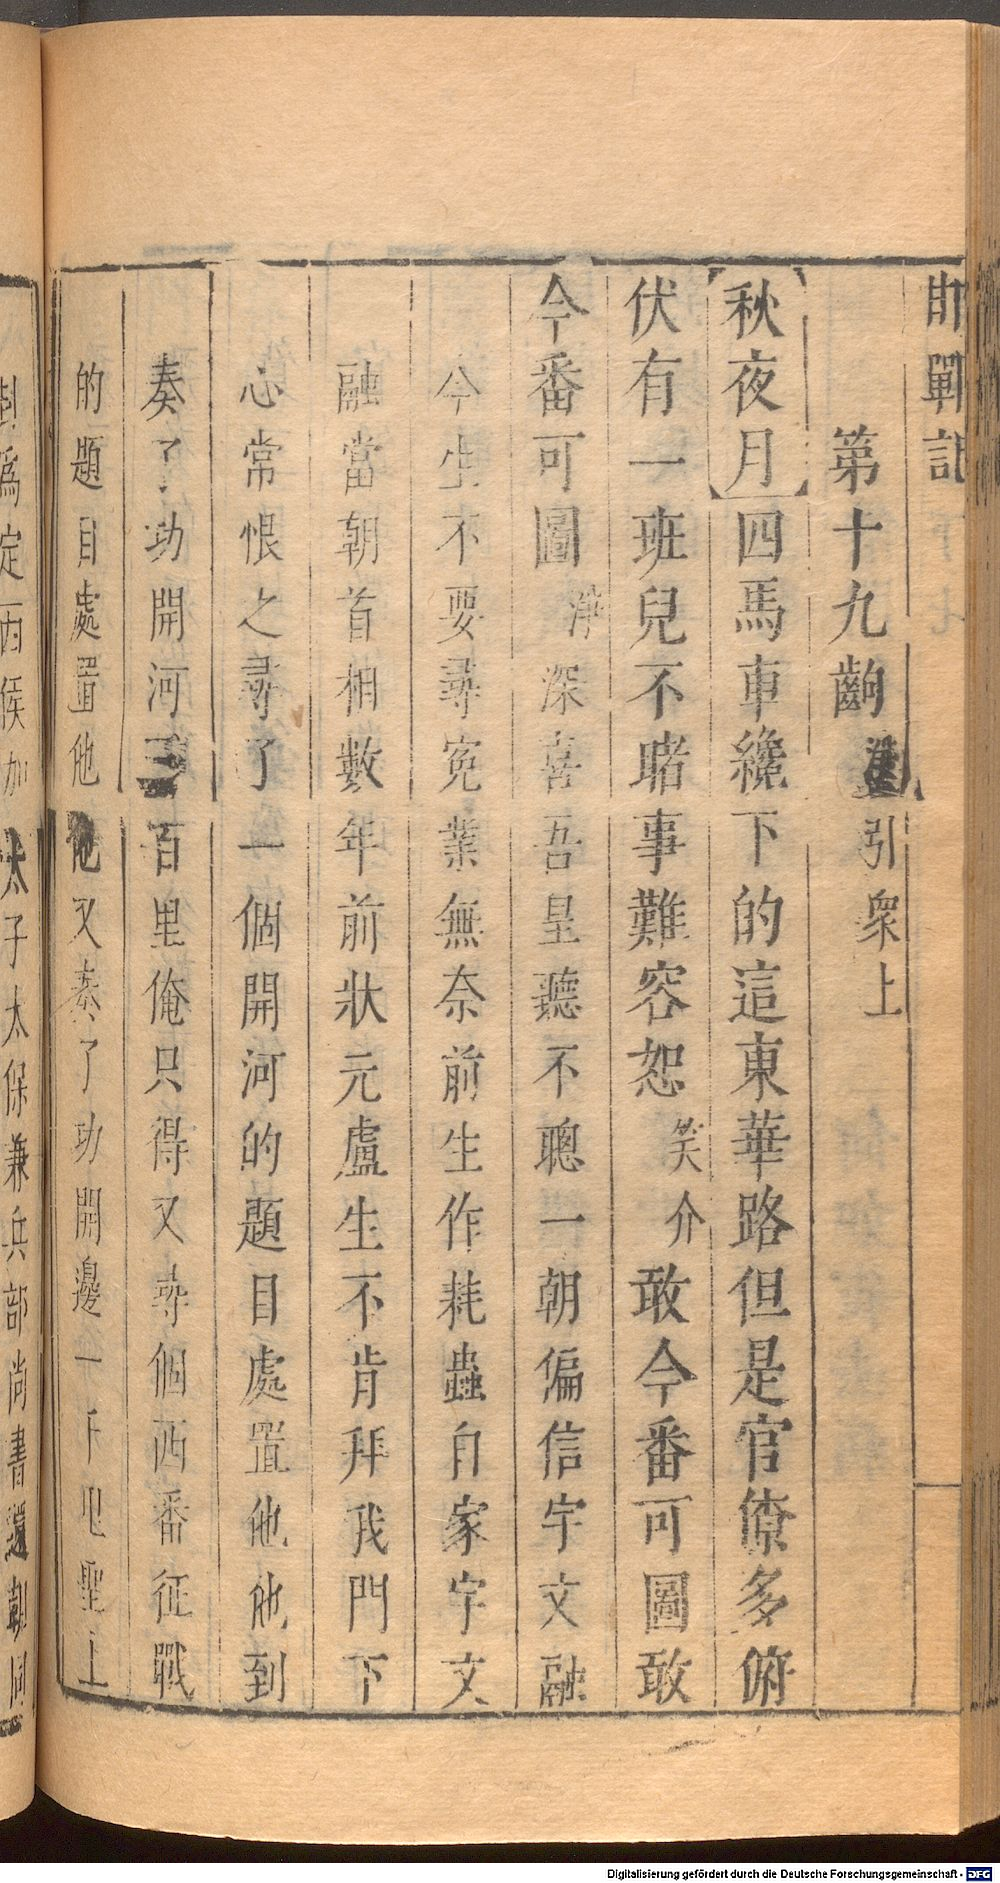 邯鄲記
第十九齣
淨引衆上
秋夜月四馬車纔下的這東華路但是官僚多俯
伏有一班兒不睹事難容恕笑介敢今番可圖敢
今番可圖淨深喜吾皇聽不聰一朝偏信宇文融
今生不要尋寃業無奈前生作耗蟲自家宇文
融當朝首相數年前狀元盧生不肯拜我門下
心常恨之尋了一個開河的題目處置他他到
奏了功開河三百里俺只得又尋個西番征戰
的題目處置他他又奏了功開邊一千里聖上
封爲定西侯加太子太保兼兵部尚書還朝同
Digitalisierung gefördert durch die Deutsche Forschungsgemeinschaft - DFG